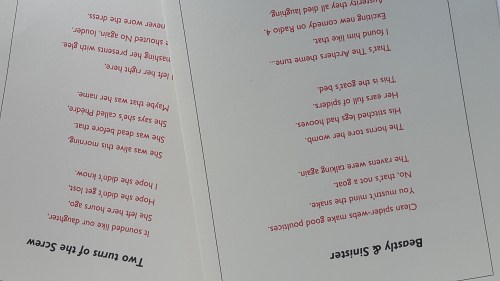 Beastly & Sinister
Clean spider-webs make good poultices.
You mustn't mind the snake.
No, that's not a goat.
The ravens were talking again.
The her womb.
His stitched legs had hooves
Her ears full of spiders.
This is the goat's bed.
That's The Archers theme tune...
I found him like that.
Exciting new comedy on Radio 4.
they all died laughing.
Two turns of the Screw
It sounded like our daughter.
She left here hours ago.
Hope she didn't get lost,
I hope she didn't know.
She was alive this morning.
She was dead before that.
She says she's called Phèdre,
Maybe that was her name.
I left her right here.
her presents with glee.
shouted No again, louder.
never wore the dress.